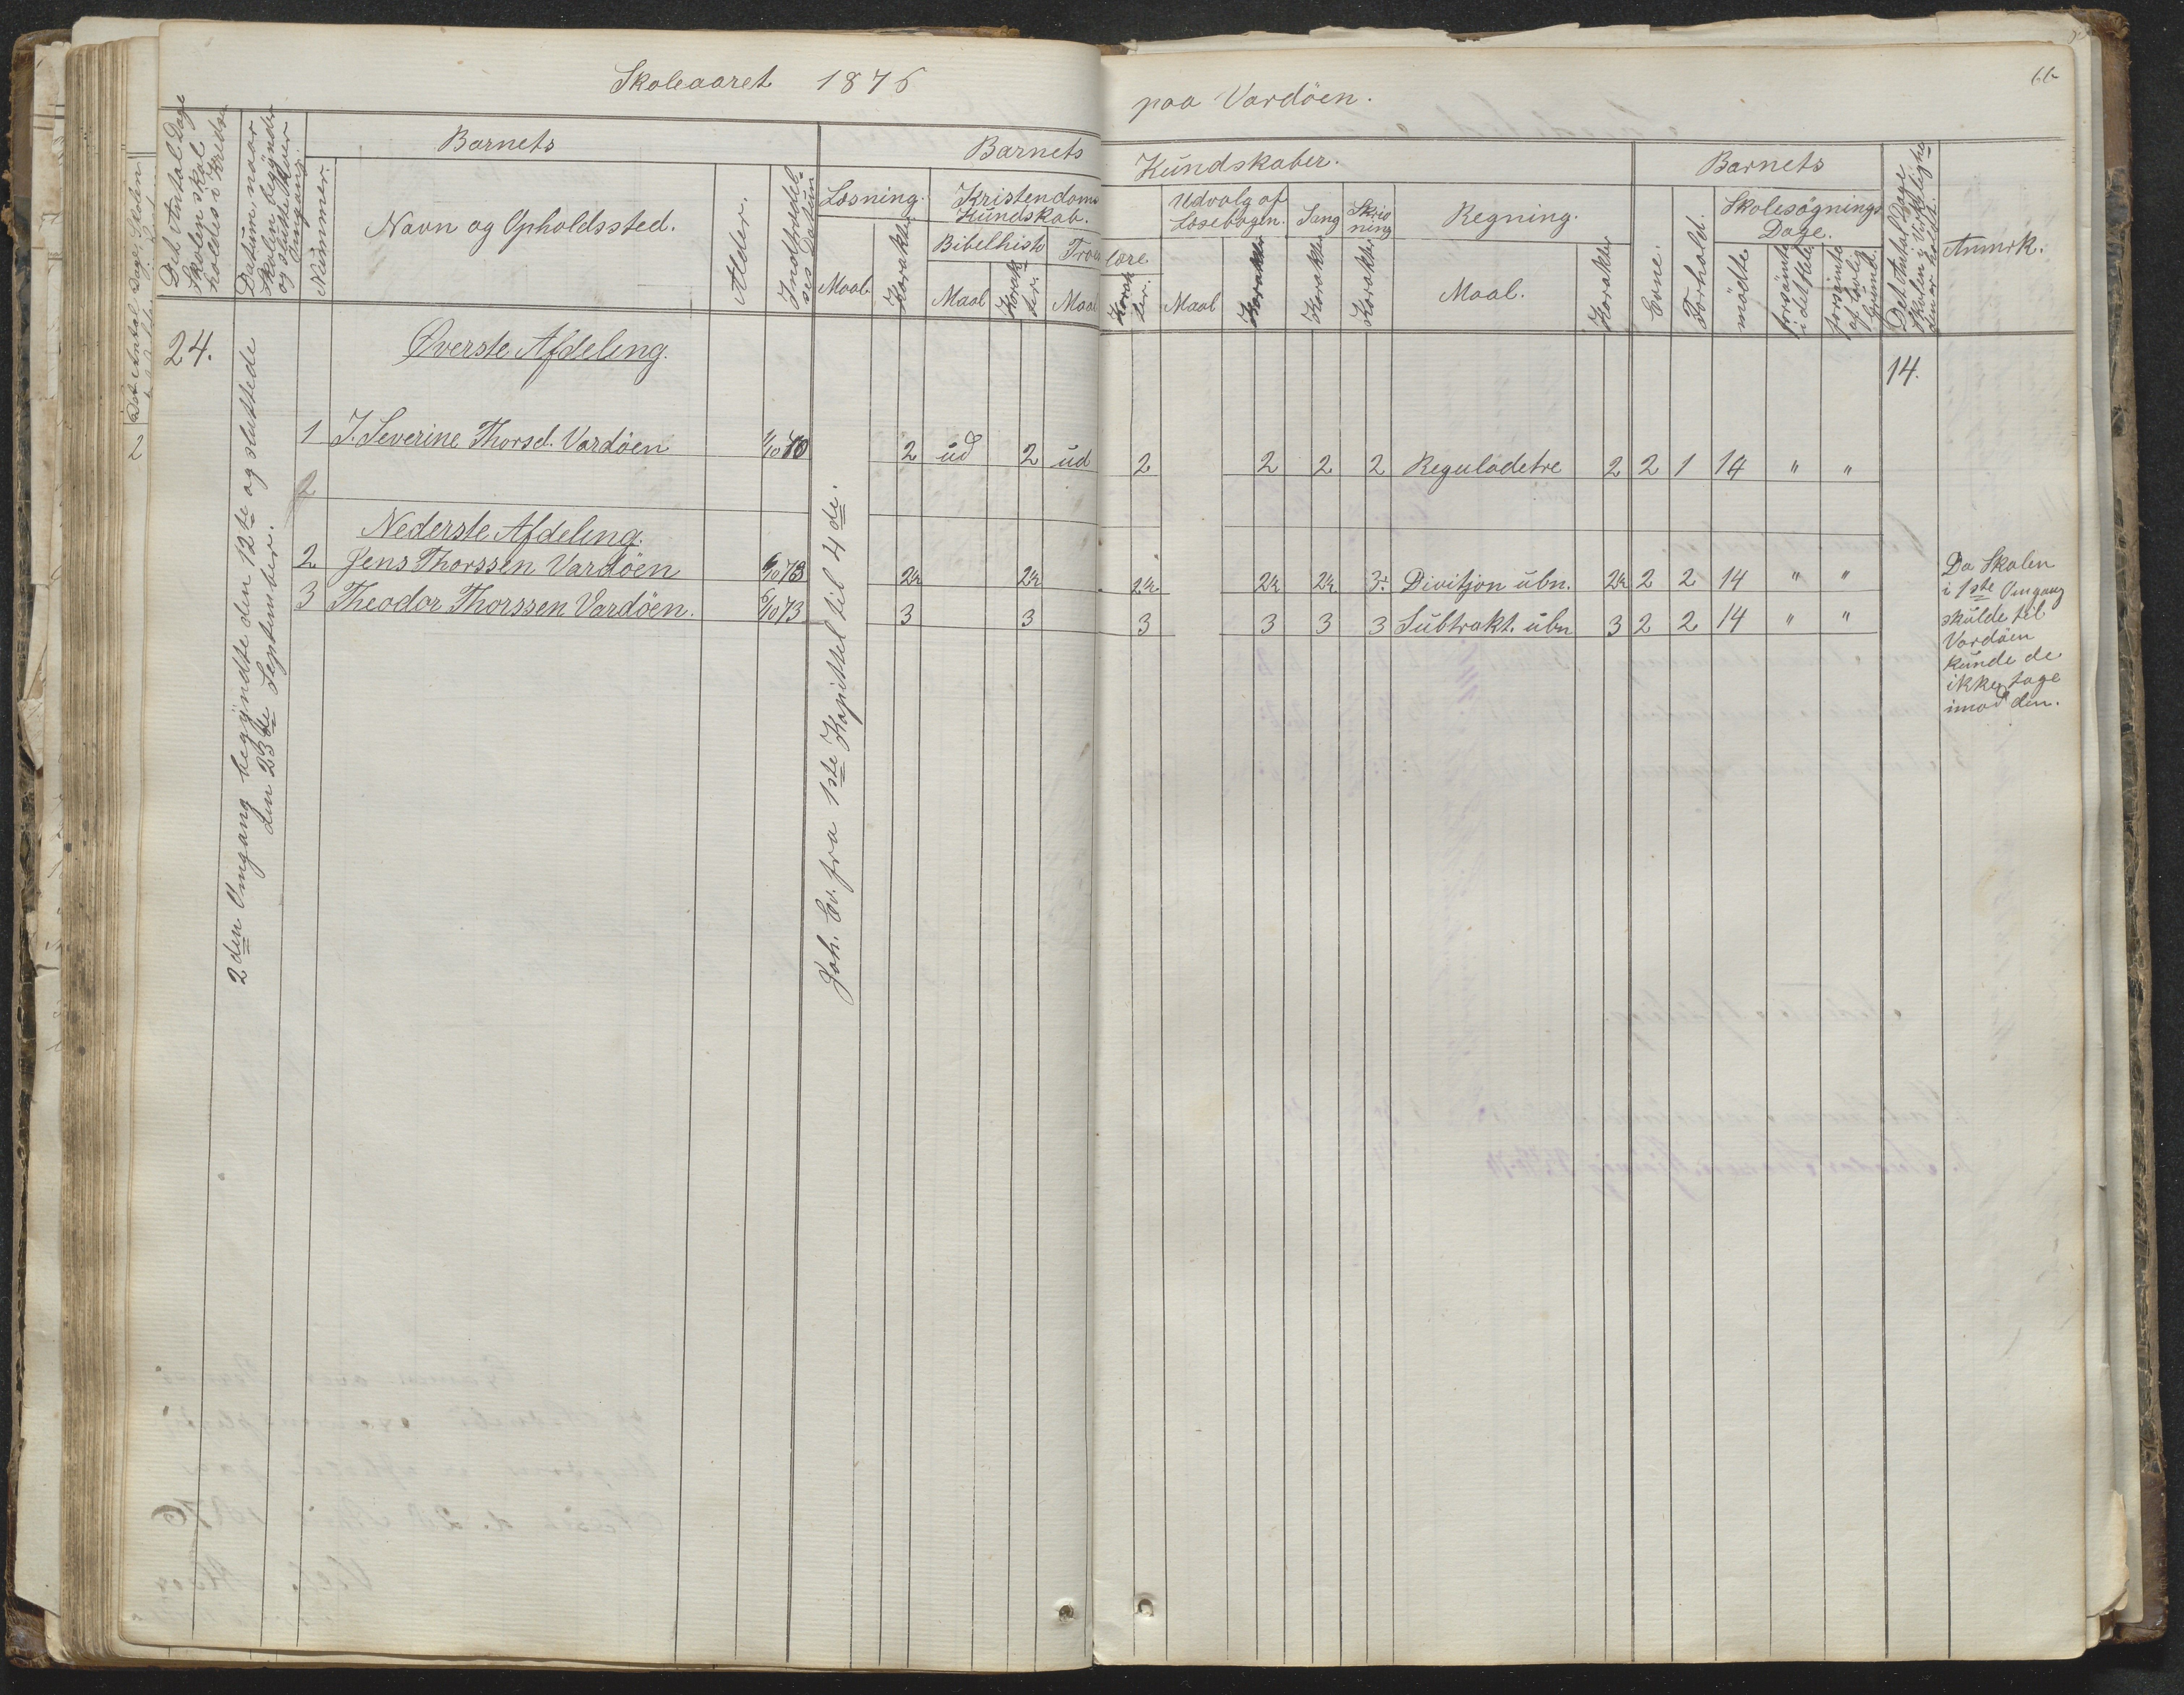 Skoleaaret 1876
paa Vardöen.
Det Antal Dage
Skolen skal
holdes i Kredsen
Datum, naar
Skolen begynder
og slutter hver
Omgang.
Nummer.
Barnets
Navn og Opholdssted.
Alder.
Indtrædel-
ses Datum
Barnets
Kundskaber.
Læsning.
Maal.
Karakter.
Kristendoms
Kundskab.
Bibelhist
Maal
Karak-
ter.
Troes
lære
Maal
Karak
ter.
Udvalg af
Læsebogen.
Maal
Karakter
Sang
Karakter
Skriv
ning
Karakter
Regning.
Maal.
Karakter
Barnets
Evne.
Forhold.
Skolesøgnings
Dage.
mödte
forsömte
i det Hele
forsömte
af lovlig
Grund.
Det Antal Dage
Skolen i Virkelighe
den er holdt.
Anmrk.
24.
2den Omgang begyndte den 12te og sluttede
den 23de September.
Øverste Afdeling.
14.
1 J. Severine Thorsd. Vardöen 1/10 70 2 ud 2 ud 2 2 2 2 Reguladetre 2 2 1 14 " "
2
Joh. Ev. fra 1ste Kapittel til 4de.
Nederste Afdeling.
2 Jens Thorssen Vardöen 6/10 73 2½ 2½ 2½ 2½ 2½ 3+ Divisjon ubn. 2½ 2 2 14 " "
3 Theodor Thorssen Vardöen. 6/10 73 3 3 3 3 3 3 Subtrakt. ubn 3 2 2 14 " "
Da Skolen
i 1ste Omgang
skulde til
Vardöen
kunde de
ikke tage
imod den.
Det Antal Dage Skolen
2